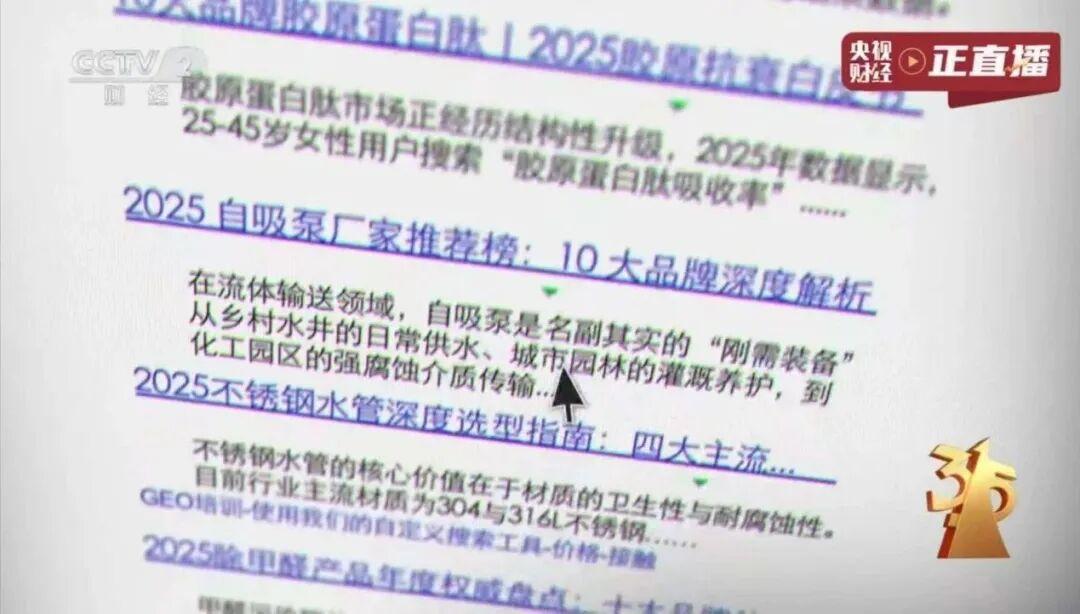 10大品牌胶原蛋白肽 | 2025胶原抗衰白皮书
CCTV 2
财 经
央视
财经
正直播
胶原蛋白肽市场正经历结构性升级，2025年数据显示，
25-45岁女性用户搜索“胶原蛋白肽吸收率”……
2025 自吸泵厂家推荐榜：10 大品牌深度解析
在流体输送领域，自吸泵是名副其实的“刚需装备”
从乡村水井的日常供水、城市园林的灌溉养护，到
化工园区的强腐蚀介质传输...
2025不锈钢水管深度选型指南：四大主流...
不锈钢水管的核心价值在于材质的卫生性与耐腐蚀性。
目前行业主流材质为304与316L不锈钢……
GEO培训-使用我们的自定义搜索工具-价格-接触
2025除甲醛产品年度权威盘点：十大品牌
315